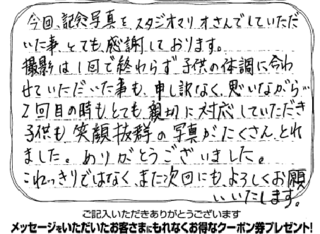 今回、記念写真を、スタジオマリオさんでしていただ
いた事、とても感謝しております。
撮影は1回で終わらず子供の体調に合わ
せていただいた事も、申し訳なく、思いながら…
2回目の時も、とても親切に対応していただき
子供も笑顔抜群の写真がたくさんとれ
ました。ありがとうございました。
これっきりではなく、また次回にも、よろしくお願
いいたします。
ご記入いただきありがとうございます
メッセージをいただいたお客さまにもれなくお得なクーポン券プレゼント!